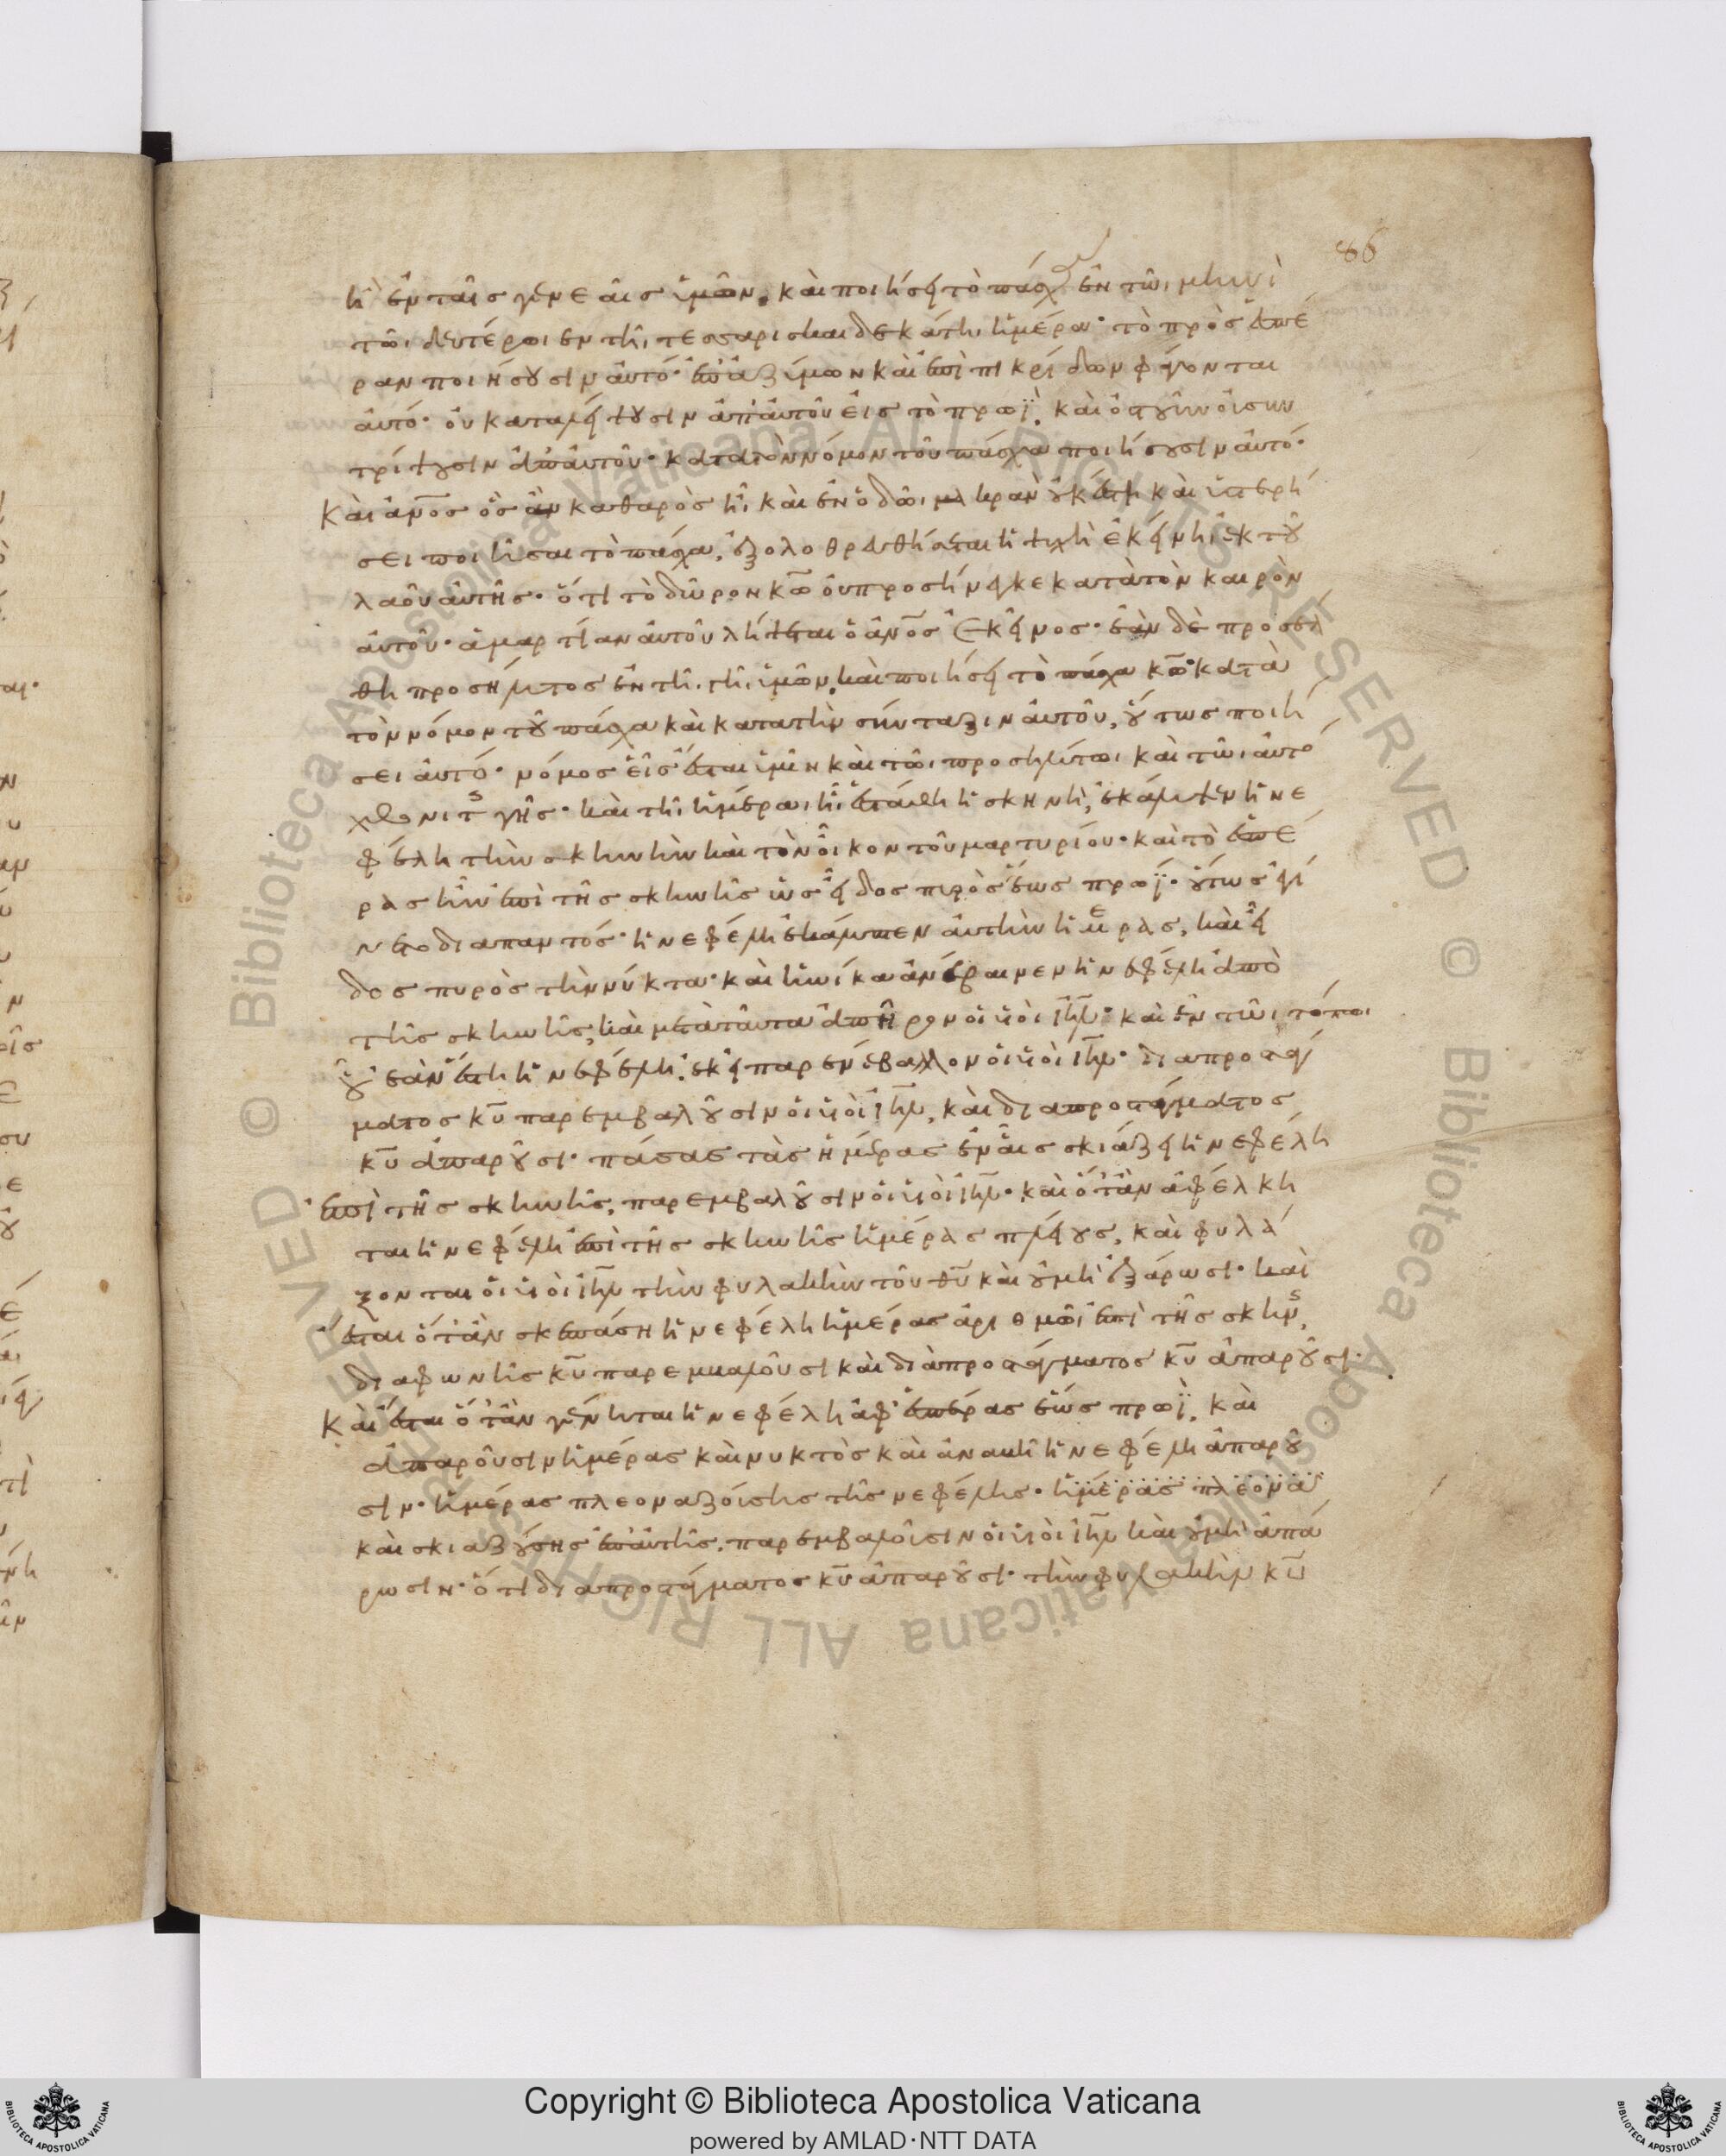 86
ἢ ἐν ταῖς γενεαῖς ὑμῶν. καὶ ποιήσει τὸ πάσχα ἐν τῶι μηνὶ
τῶι δευτέρωι ἐν τῆι τεσσαρισκαιδεκάτηι ἡμέραι· τὸ πρὸς ἑσπέ
ραν ποιήσουσιν αὐτό· ἐπ' ἀζύμων καὶ ἐπὶ πικρίδων φάγονται
αὐτό· οὐ καταλείψουσιν ἀπ' αὐτοῦ εἰς τὸ πρωΐ. καὶ ὀστοῦν οὐ συν
τρίψουσιν ἀπ' αὐτοῦ· κατὰ τὸν νόμον τοῦ πάσχα ποιήσουσιν αὐτό·
Καὶ ἄνος ὃς ἂν καθαρὸς ἦι καὶ ἐν ὁδῶι μακρὰν οὐκ ἔστι καὶ ὑστερή
σει ποιῆσαι τὸ πάσχα, ἐξολοθρευθήσεται ἡ ψυχὴ ἐκείνη ἐκ τοῦ
λαοῦ αὐτῆς· ὅτι τὸ δῶρον κω οὐ προσήνεγκε κατὰ τὸν καιρὸν
αὐτοῦ· ἁμαρτίαν αὐτοῦ λήψεται ὁ ἄνος ἐκεῖνος· ἐὰν δὲ προσέλ
θη προσήλυτος ἐν τῆι γῆι ὑμῶν, καὶ ποιήσει τὸ πάσχα κω· κατὰ
τὸν νόμον τοῦ πάσχα καὶ κατὰ τὴν σύνταξιν αὐτοῦ, οὕτως ποιή
σει αὐτό· νόμος εἷς ἔσται ὑμῖν καὶ τῶι προσηλύτωι καὶ τῶι αὐτό
χθονι τῆς γῆς· καὶ τῆι ἡμέραι ἧι ἐστάθη ἡ σκηνὴ, ἐκάλυψεν ἡ νε
φέλη τὴν σκηνὴν καὶ τὸν οἶκον τοῦ μαρτυρίου· καὶ τὸ ἑσπέ
ρας ἦν ἐπὶ τῆς σκηνῆς ὡς εἶδος πυρὸς ἕως πρωΐ· οὕτως ἐγί
νετο διαπαντός· ἡ νεφέλη ἐκάλυπτεν αὐτὴν ἡμέρας, καὶ εἶ
δος πυρὸς τὴν νύκτα· καὶ ἡνίκα ἂν ἔβαινεν ἡ νεφέλη ἀπὸ
τῆς σκηνῆς, καὶ μετὰ ταῦτα ἀπῆρον οἱ υἱοὶ ιηλ· καὶ ἐν τῶι τόπωι
οὗ ἐὰν ἔστη ἡ νεφέλη, ἐκεῖ παρενέβαλλον οἱ υἱοὶ ιηλ· διαπροστάγ
ματος κυ παρεμβαλοῦσιν οἱ υἱοὶ ιηλ, καὶ διαπροστάγματος
κυ ἀπαροῦσι· πάσας τὰς ἡμέρας ἐν αἷς σκιάζει ἡ νεφέλη
ἐπὶ τῆς σκηνῆς, παρεμβαλοῦσιν οἱ υἱοὶ ιηλ· καὶ ὅταν ἀφέλκη
ται ἡ νεφέλη ἐπὶ τῆς σκηνῆς ἡμέρας πλείους, καὶ φυλά
ξονται οἱ υἱοὶ ιηλ τὴν φυλακὴν τοῦ θυ καὶ οὐ μὴ ἐξάρωσι· καὶ
ἔσται ὅταν σκεπάση ἡ νεφέλη ἡμέρας ἀριθμῶι ἐπὶ τῆς σκηνῆς,
διαφωνῆς κυ παρεμβαλοῦσι καὶ διὰ προστάγματος κυ ἀπαροῦσι·
Καὶ ἔσται ὅταν γένηται ἡ νεφέλη ἀφ' ἑσπέρας ἕως πρωΐ, καὶ
ἀπαροῦσιν ἡμέρας καὶ νυκτὸς καὶ ἀναβῆ ἡ νεφέλη ἀπαροῦ
σιν· ἡμέρας πλεοναζούσης τῆς νεφέλης· ἡμέρας πλεονα
καὶ σκιαζούσης ἐπ' αὐτῆς, παρεμβαλοῦσιν οἱ υἱοὶ ιηλ καὶ οὐ μὴ ἀπά
ρωσιν· ὅτι διαπροστάγματος κυ ἀπαροῦσι· τὴν φυλακὴν κυ
Copyright © Biblioteca Apostolica Vaticana
powered by AMLAD·NTT DATA